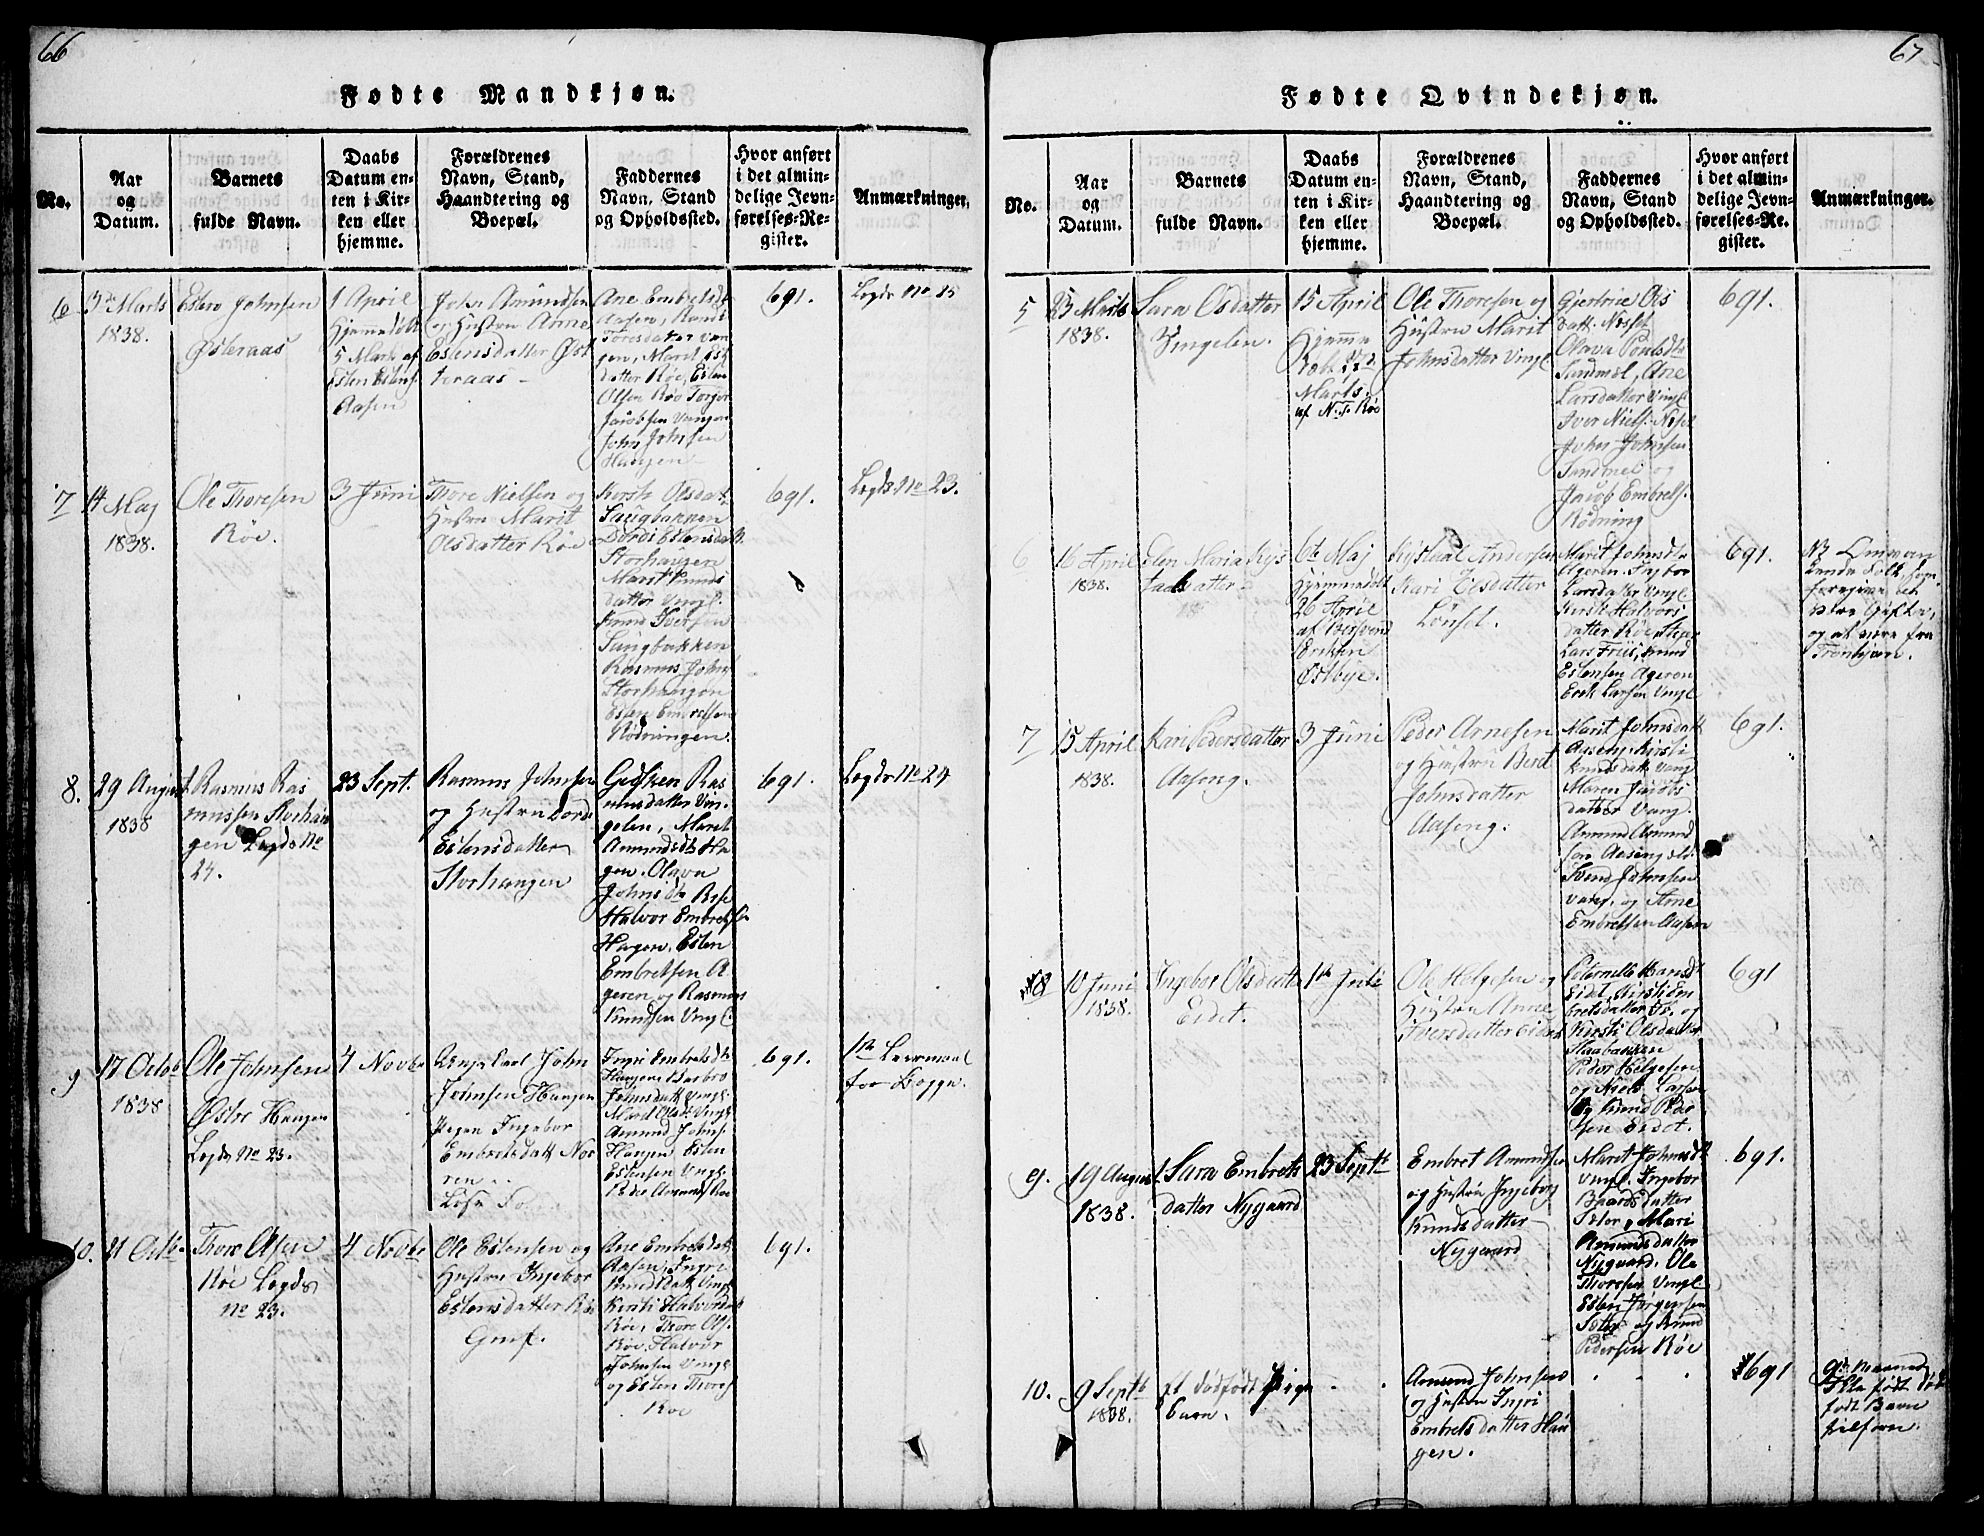 66
Fødte Mandkjøn.
No.
Aar
og
Datum.
Barnets
fulde Navn.
Daabs
Datum en-
ten i Kir-
ken eller
hjemme.
Forældrenes
Navn, Stand,
Haandtering og
Boepæl.
Faddernes
Navn, Stand
og Opholdssted.
Hvor anført
i det almin-
delige Jevn-
førelses-Re-
gister.
Anmærkninger.
6
Marts
1838.
Johnsen
Østeraas
1 April
5 Marts af
Esten Estens
Aasen
John Amundsen
og Hustru Anne
Estensdatter Øst
eraas
Ane Embretsd
Aasen, Randi
Toresdatter Van
gen, Marit Est
datter Røe, Esten
Olsen Røe Torger
Jacobsen Vangen
John Johnsen
Haugen
691.
Legds No 25
7
14 May
1838.
Ole Thoresen
Røe.
3 Juni
Thore Nielsen og
Hustru Marit
Olsdatter Røe
Kersti Olsdat
Saugbakken
Dordi Estensdatt
Storhaugen
Marit Knuds
datter Vingl.
Knud Iversen
Saugbakken
Rasmus Johns
Storhaugen
Esten Embretsen
Rødningen.
691.
Legds No 23.
8.
29 August
1838
Rasmus Ras
mussen Storhau
gen Legds No
24.
23 Sept.
Rasmus Johnsen
og Hustru Dordi
Estensdatter
Storhaugen
Ras
musdatter Vin-
gelen, Marit
Amundsdtr Ha
gen, Olava
Johnsdtr
Halvor Embretsen
Hagen, Esten
Embretsen A
geren og Rasmus
Knudsen Vingl.
691.
Legds No 24
9
17 Octob
1838
Ole Johnsen
Østre Haugen
Legds No 23.
4 Novbr
Ungkarl John
Johnsen Haugen
Pigen Ingebor
Embretsdatt No
ren
Ingri Embretsdtr
Haugen, Barbro
Johnsdatt Vingl.
Marit Olsdt Vingl.
Amund Johns
Haugen Esten
Estensen Vingl.
Peder Amunds Røe
691.
1ste Leiermaal
for Begge.
10.
21 Octb
Thore Olsen
Røe Legds
No 23.
4 Novbr
Ole Estensen og
Hustru Ingebor
Estensdatter Røe
Gmf.
Ane Embretsdatt
Aasen, Ingri
Knudsdatt Vingl
Kirsti Halvorsdatt
Røe, Thore Ols.
Røe, Halvor
Johnsen Vingl.
og Esten Thores
Røe
691.
67
Fødte Qvindekjøn.
No.
Aar
og
Datum.
Barnets
fulde Navn.
Daabs
Datum en-
ten i Kir-
ken eller
hjemme.
Forældrenes
Navn, Stand,
Haandtering og
Boepæl.
Faddernes
Navn, Stand
og Opholdssted.
Hvor anført
i det almin-
delige Jevn-
førelses-Re-
gister.
Anmærkninger.
5
23 Marts
1838.
Sara Olsdatter
Vingelen.
15 April
Hjemme
Marts.
af N. T. Røe
Ole Thoresen og
Hustru Marit
Johnsdatter Vingl
Gjertrue Ols
datt. Nesset
Olava Poulsdtr
Sandmel, Ane
Larsdatter Vingl.
Iver Niels. Nesset
John Johnsen
Sandmel og
Jacob Embrets.
Rødning
691.
6
16 April
1838.
Elen Maria Kys
tadsdatter
6te Maj
hjemmedøbt
26 April
af
Eriksen
Østbye.
Andersen
og
Kari Elsdatter
Lønset.
Marit Johnsdtr
Ageren. Ingbor
Larsdatter Vingl
Kirsti Halvors
datter Røe
Lars Friis, Knud
Estensen Ageren
Erik Larsen Vingl
691.
NB Omvan
kende Folk, som
foregive at
være Gifte,
og at være fra
Tronhjem.
7
15 April
1838.
Kari Pedersdatter
Aaseng.
3 Juni
Peder Arnesen
og Hustru Berit
Johnsdatter
Aaseng.
Marit Johnsdatt
Aaseng, Kirsti
Knudsdatt Vang
Maren Jacobs
datter Vang.
Amund Amund
sen Aasengsld.
Svend Johnsen
Vang, og Arne
Embretsen Aasen
691.
8
10 Juni
1838.
Ingebor Olsdatter
Eidet.
1ste Juli
Ole Helgesen og
Hustru Anne
Iversdatter Eidet
Peternelle Hansdt
Eidet, Kirsti Em
bretsdatter Ib. og
Kirsti Olsdatter
Haabakken
Peder Helgesen
og Niels Larsen
og Knud Peder
sen Eidet.
691
9.
19 August
1838.
Sara Embrets
datter Nygaard
23 Septbr
Embret Amundsen
og Hustru Ingeborg
Knudsdatter
Nygaard
Marit Johnsdt
Vingl. Ingebor
Baardsdatter
Mari
Amundsdatter
Nygaard, Ole
Thoresen Vingl.
Esten Jørgensen
og Knud
Pedersen Røe
691.
10.
9 Septbr
1838.
et dødfødt Pige
barn.
Amund Johnsen
og Hustru Ingri
Embretsdatter Hau
gen.
691
født død
født Barn